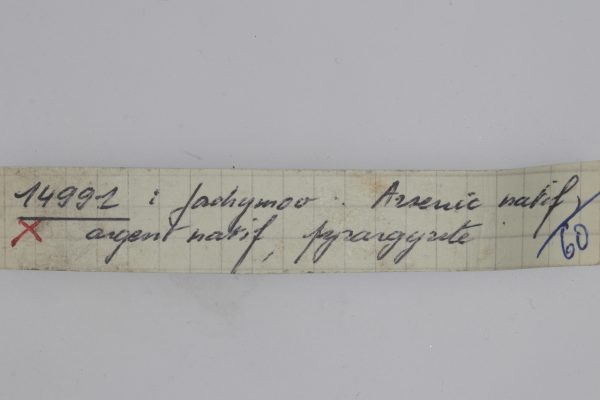 14991 : Jachymov : Arsenic natif,
X argent natif, pyrargyrite /60